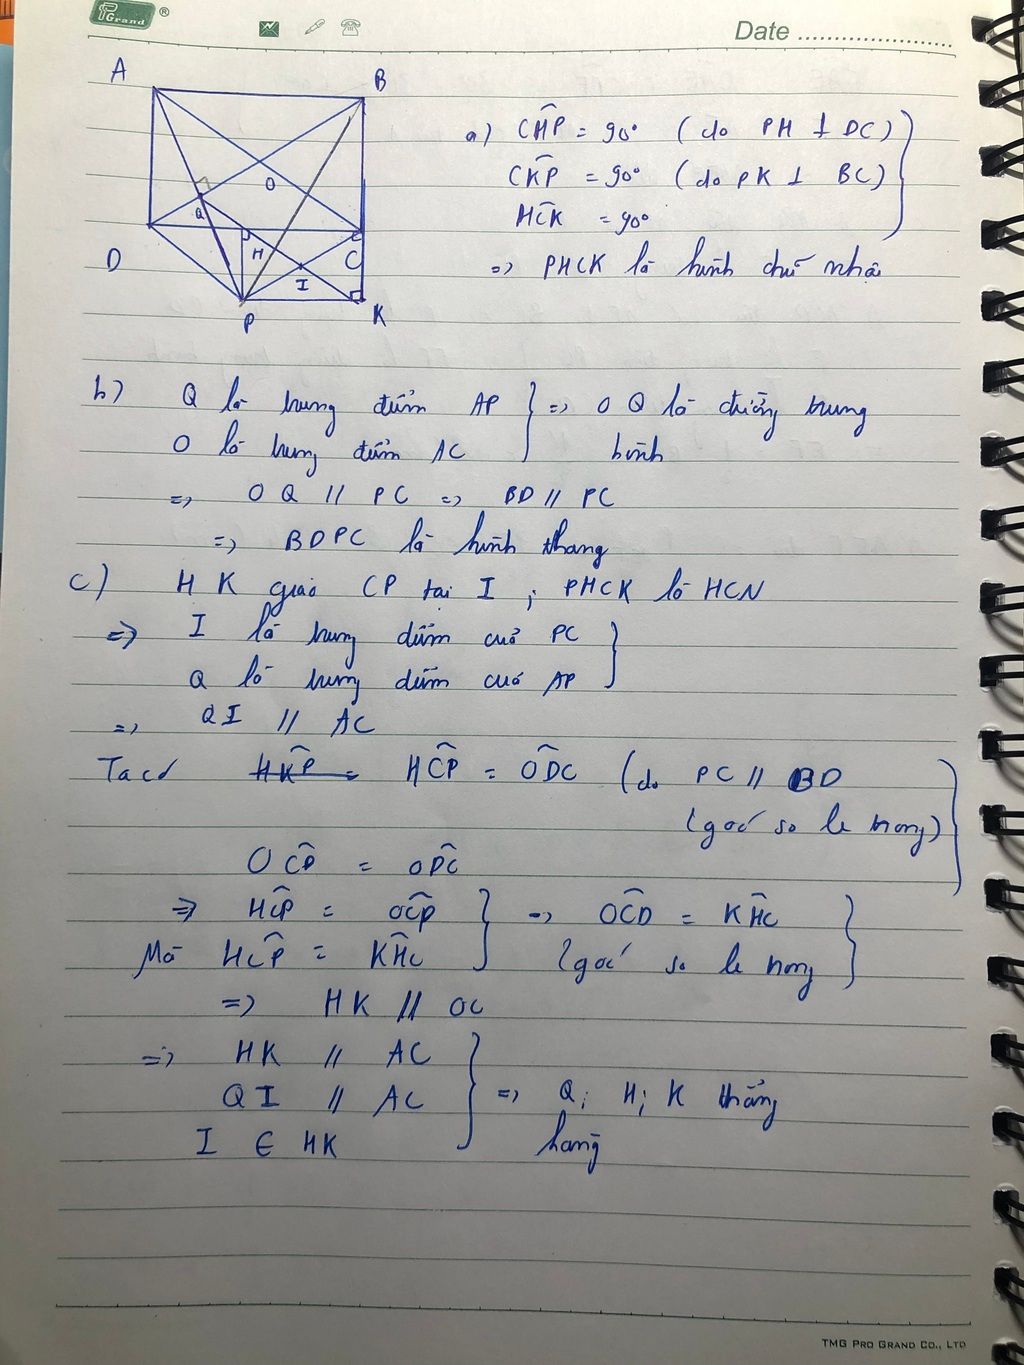 Grand ®
Date
A
B
O
Q
D
H
C
I
P
K
a) CHP = 90° (do PH ⊥ DC)
CKP = 90° (do PK ⊥ BC)
HCK = 90°
=> PHCK là hình chữ nhật
b) Q là trung điểm AP
O là trung điểm AC
=> OQ là đường trung
bình
=> OQ // PC => BD // PC
=> BDPC là hình thang
c) HK giao CP tại I ; PHCK là HCN
=> I là trung điểm của PC
Q là trung điểm của AP
=> QI // AC
Ta có HCP = ODC (do PC // BD
(góc so le trong)
OCD = ODC
=> HCP = OCD => OCD = KHC
Mà HCP = KHC (góc so le trong
=> HK // OC
=> HK // AC
QI // AC => Q; H; K thẳng
I ∈ HK hàng
TMG PRO GRAND CO., LTD